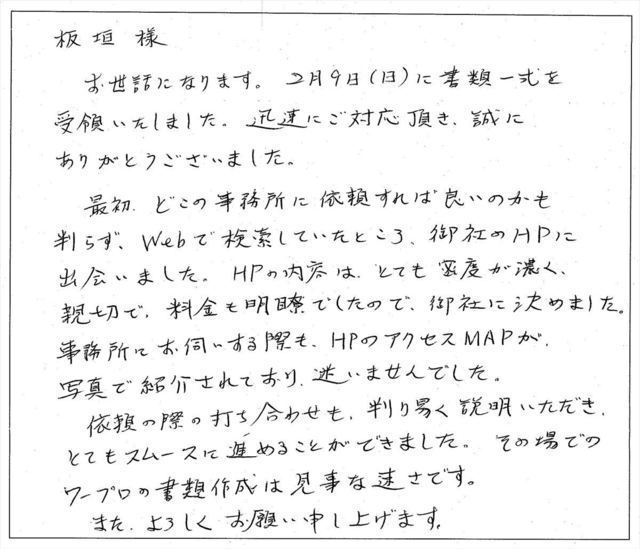 板垣様
お世話になります。2月9日(日)に書類一式を
受領いたしました。迅速にご対応頂き、誠に
ありがとうございました。
最初、どこの事務所に依頼すれば良いのかも
判らず、Webで検索していたところ、御社のHPに
出会いました。HPの内容は、とても密度が濃く、
親切で、料金も明瞭でしたので、御社に決めました。
事務所にお伺いする際も、HPのアクセスMAPが、
写真で紹介されており、迷いませんでした。
依頼の際の打ち合わせも、判り易く説明いただき、
とてもスムースに進めることができました。その場での
ワープロの書類作成は見事な速さです。
また、よろしくお願い申し上げます。